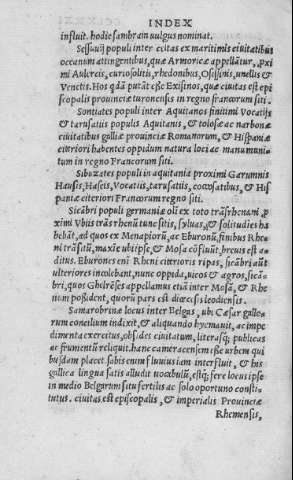 INDEX
influit. hodie sambram uulgus nominat.
Sessuuij populi inter ceitas ex maritimis ciuitatibus
oceanum attingentibus, quæ Armoricæ appellãtur, pxi
mi Aulercis, curiosolitis, rhedonibus, Osissinis, unellis &
Venetis. Hos qdã putãt esse Exsinos, quæ ciuitas est epi
scopalis prouinciæ turonensis in regno francorum siti.
Sontiates populi inter Aquitanos finitimi Vocatijs
& tarusatiis populis Aquitanis, & tolosæ ac narbonæ
ciuitatibus gilliæ prouinciæ Romanorum, & Hispaniæ
citeriori habentes oppidum natura loci ac manu muni-
tum in regno Francorum siti.
Sibuzates populi in aquitania proximi Garumnis
Hausis, Hascis, Vocatiis, tarusatiis, cocosatibus, & His
paniæ citeriori Francorum regno siti.
Sicãbri populi germaniæ oli ex toto trãsrhenani, p
ximi Vbiis trãs rhenũ tunc sitis, syluas, & solitudies ha
bebãt, ad quos ex Menapiorũ, ac Eburonũ, finibus Rhe
ni trãsitũ, maxie ubi ipse, & Mosa cõfluũt, breuis est ac
ditus. Eburones eni Rheni citerioris ripas, sicãbri aũt
ulteriores incolebant, nunc oppida, uicos & agros, sicã-
bri, quos Ghelrẽses appellamus etiã inter Mosã, & Rhe
nium possident, quorũ pars est diœcesis leodiensis.
Samarobrinæ locus inter Belgas, ubi Cæsar gallo-
rum concilium indixit, & aliquando hyemauit, ac impe
dimenta exercitus, obsides ciuitatum, literasq; publicas
ac frumentũ reliquit. hanc cameracensem esse urbem qui
busdam placet. scbis enim fluuius iam interfluit, & his
gallica lingua satis alludit uocabulũ, estq; fere locus ipse
in medio Belgarum situ fertilis ac solo oportuno consti-
tutus. ciuitas est episcopalis, & imperialis Prouinciæ
Rhemensis,